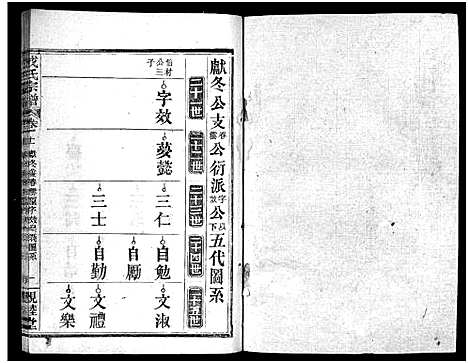 獻冬公支春雲公衍派字效公下五代圖系
二十一世
二十二世
二十三世
二十四世
二十五世
伯村公三子
字效
夢懿
三仁
三士
自勉
自勵
自勤
文淑
文禮
文樂
氏宗譜